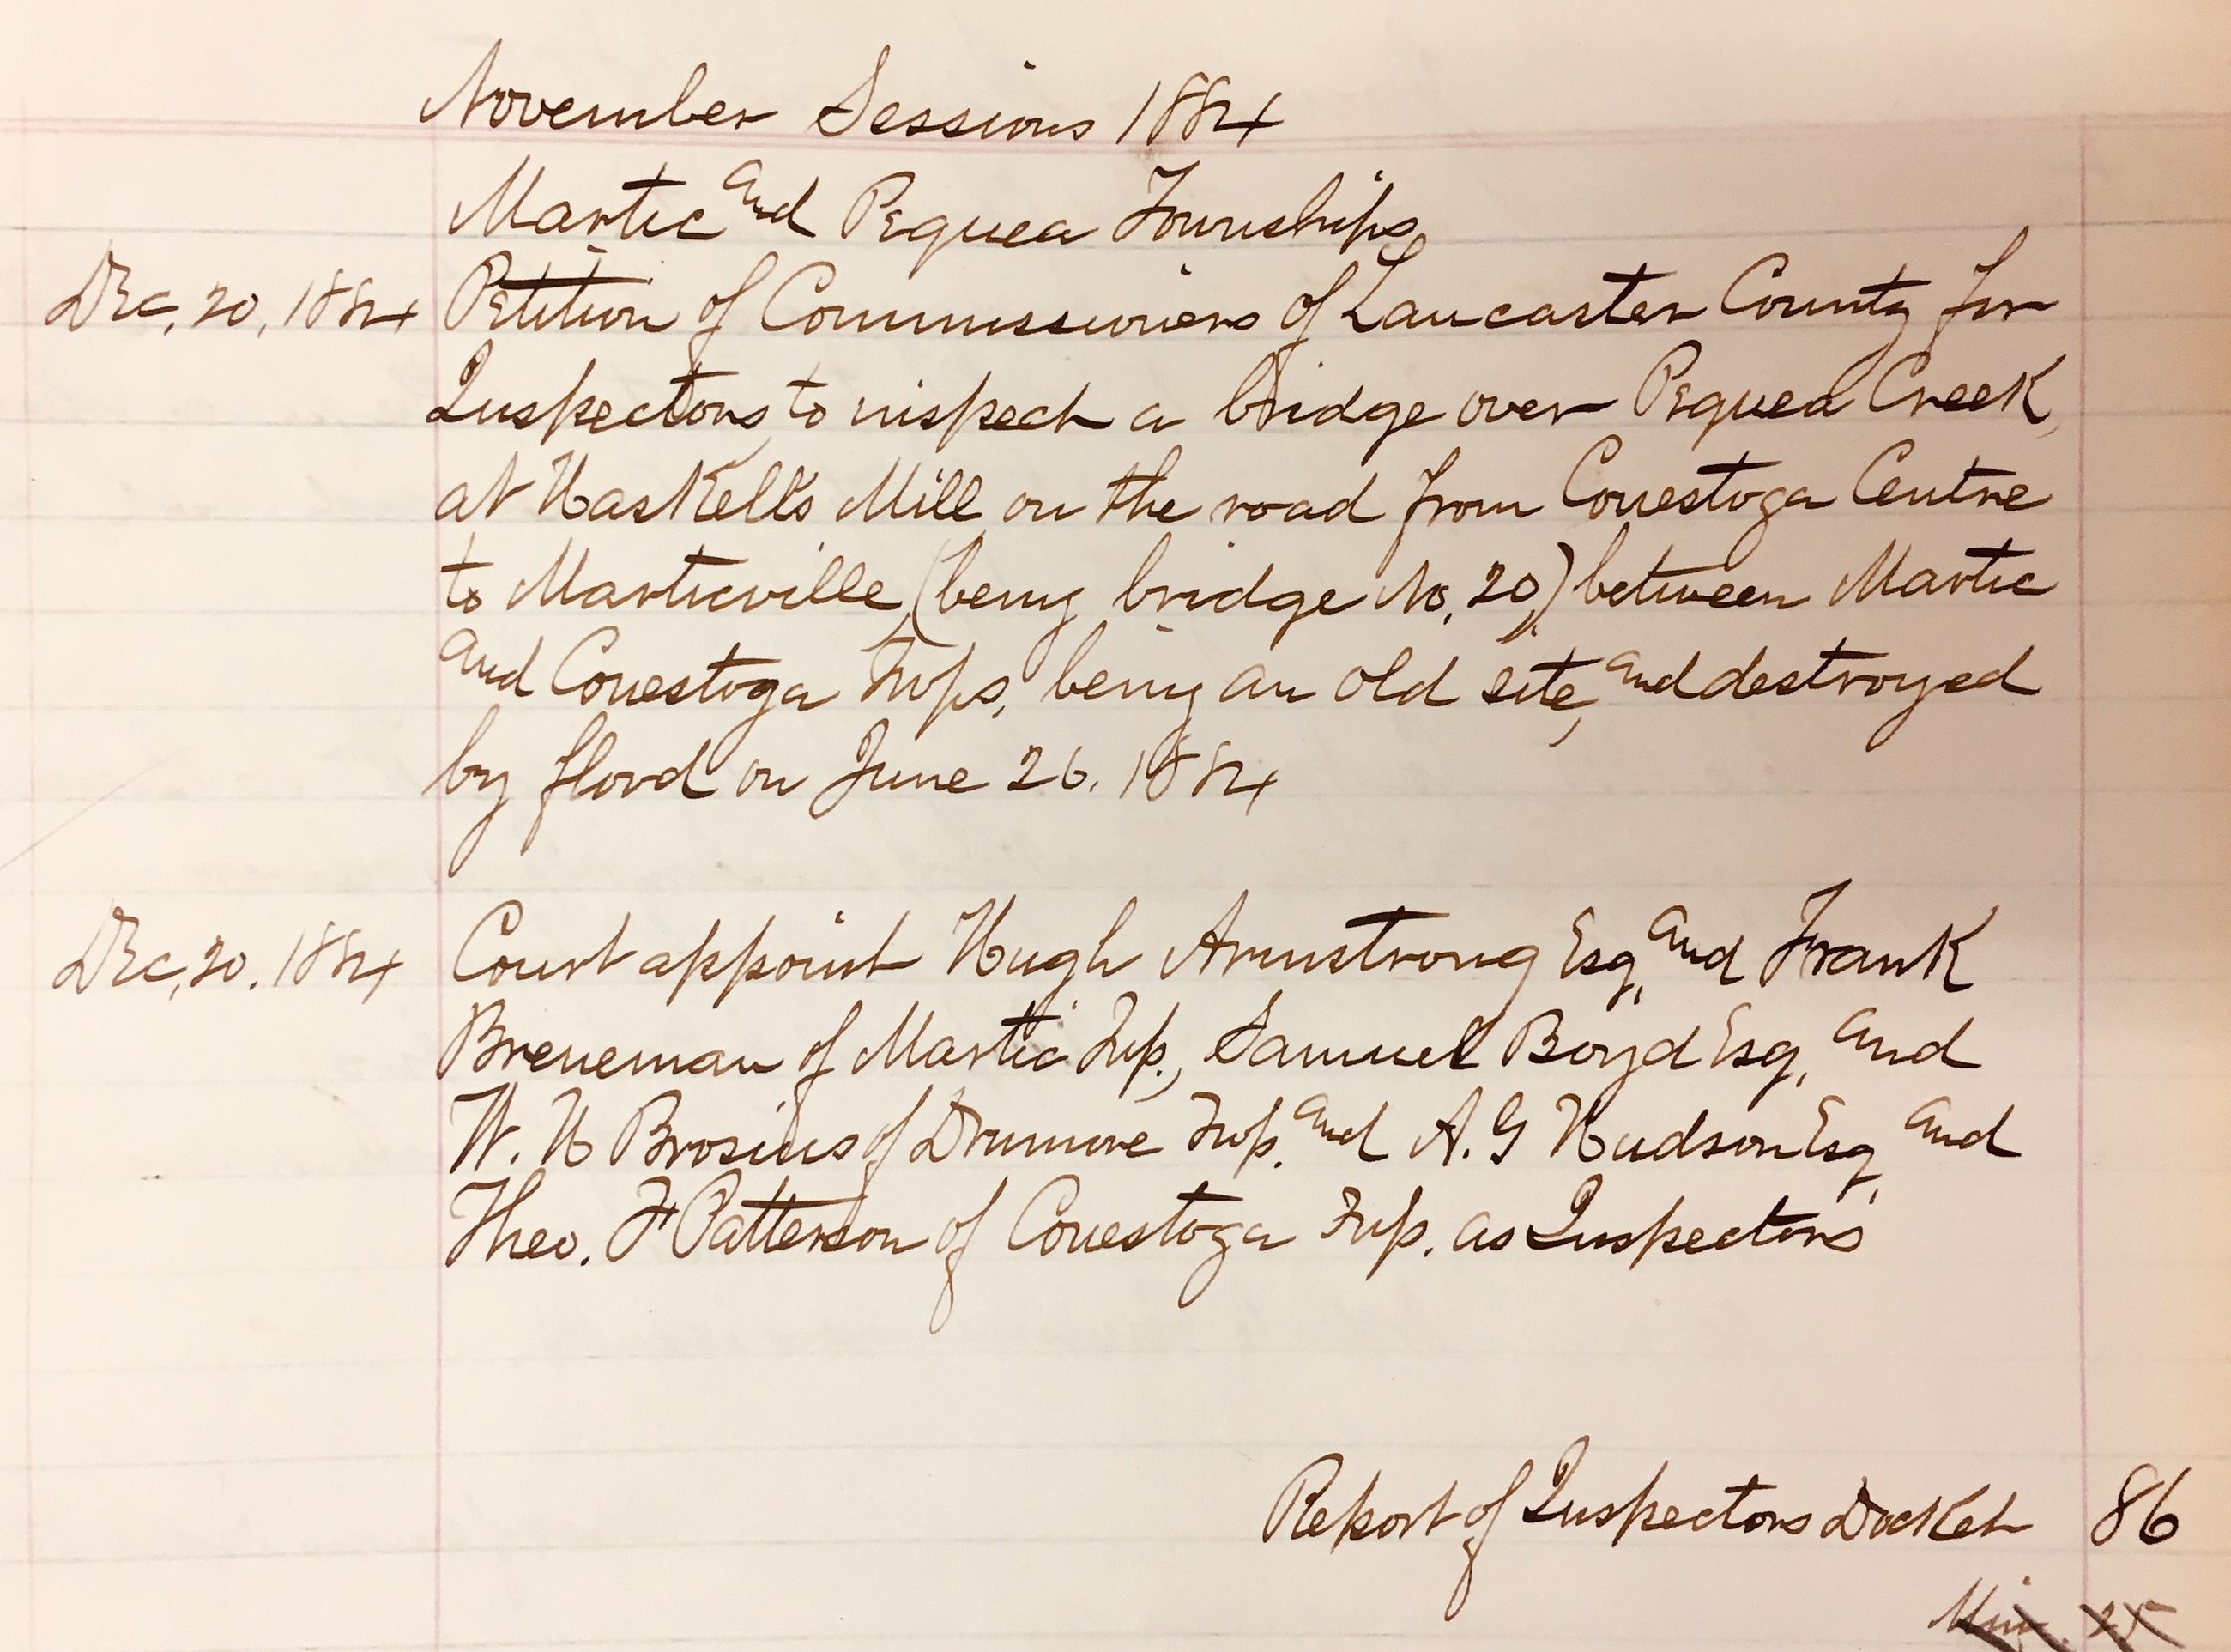 November Sessions 1884
Martic and Pequea Townships
Dec, 20, 1884 Petition of Commissioners of Lancaster County for
Inspectors, to inspect a bridge over Pequea Creek,
at Haskell's Mill on the road from Conestoga Centre
to Marticville, (being bridge No, 20,) between Martic
and Conestoga Twps, being an old site, and destroyed
by flood on June 26. 1884
Dec, 20. 1884 Court appoint Hugh Armstrong Esq, and Frank
Breneman of Martic Twp., Samuel Boyd Esq, and
W. H Brosius of Drumore Twp. and A. G Hudson Esq, and
Theo. F Patterson of Conestoga Twp. as Inspectors
Report of Inspectors Docket 86
25